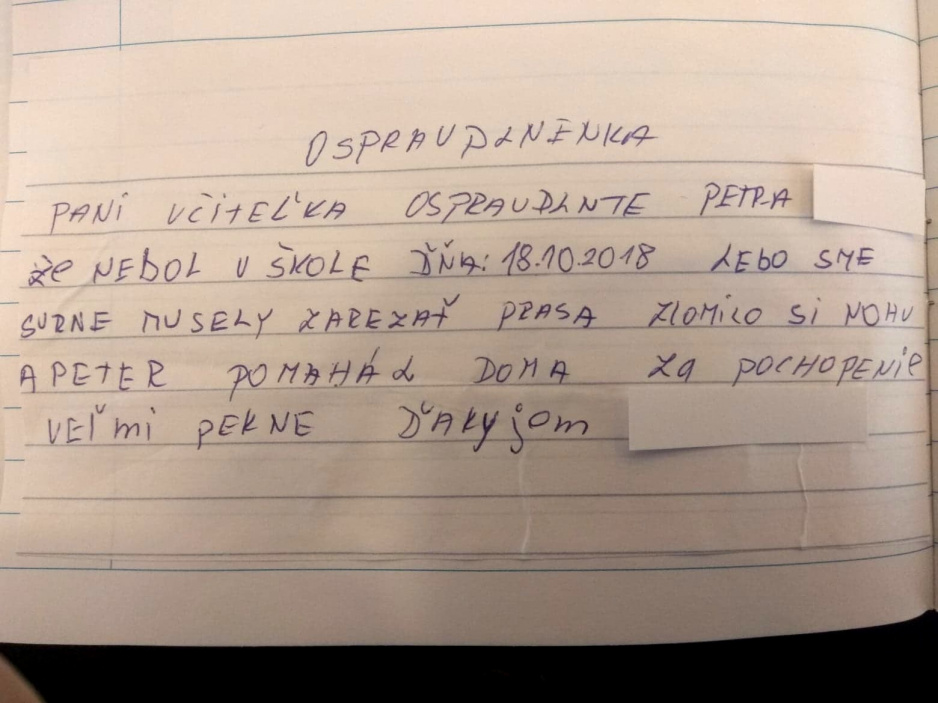 OSPRAVDLNENKA
PANI UČITEĽKA OSPRAVDLNTE PETRA
že NEBOL V ŠKOLE ĎŇA: 18.10.2018 LEBO SME
SURNE MUSELY ZAREZAŤ PRASA ZLOMILO SI NOHU
A PETER POMAHÁL DOMA ZA POCHOPENIE
VEľmi PEKNE ĎAKYjOm